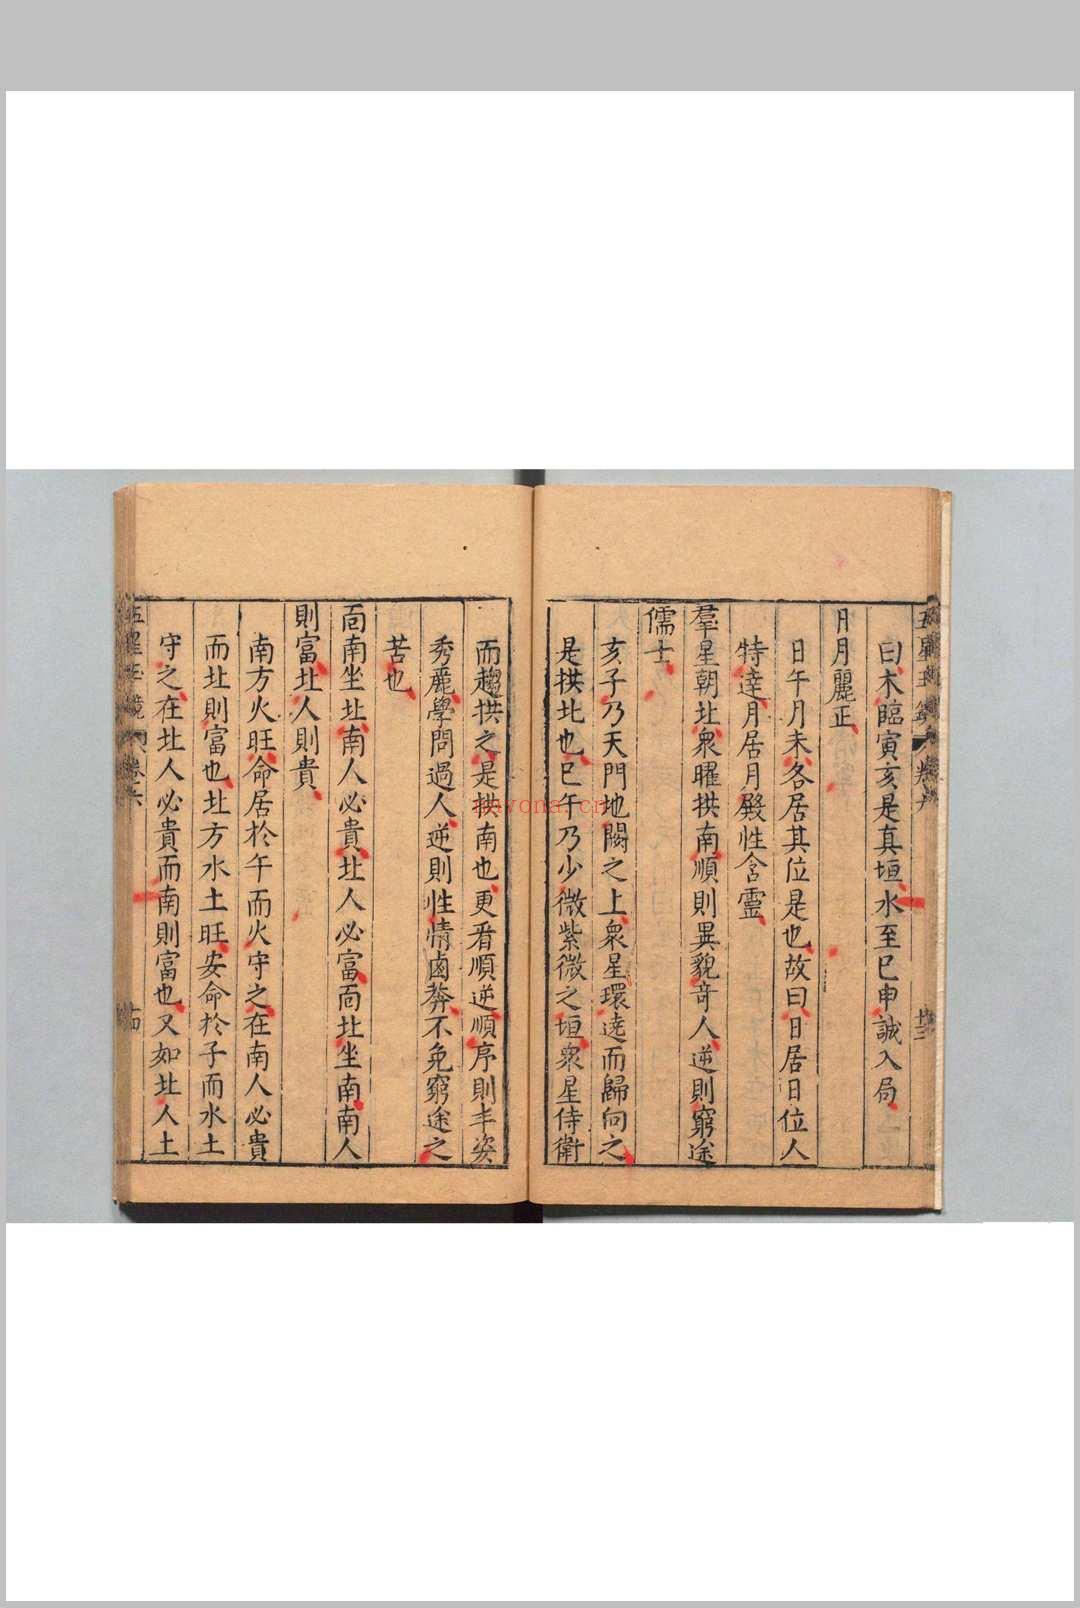 曰木臨寅亥是真垣水至巳申誠入局
月月麗正
日午月未各居其位是也故曰日居日位人
特達月居月殿性含靈
羣星朝北衆曜拱南順則異貌竒人逆則窮途
儒士
亥子乃天門地闕之上衆星環遶而歸向之
是拱北也巳午乃少微紫微之垣衆星侍衛
而趨拱之是拱南也更看順逆順序則丰姿
秀麗學問過人逆則性情鹵莾不免窮途之
苦也
面南坐北南人必貴北人必富面北坐南南人
則富北人則貴
南方火旺命居於午而火守之在南人必貴
而北則富也北方水土旺安命於子而水土
守之在北人必貴而南則富也又如北人土
卷六
十四
nnyona.cn